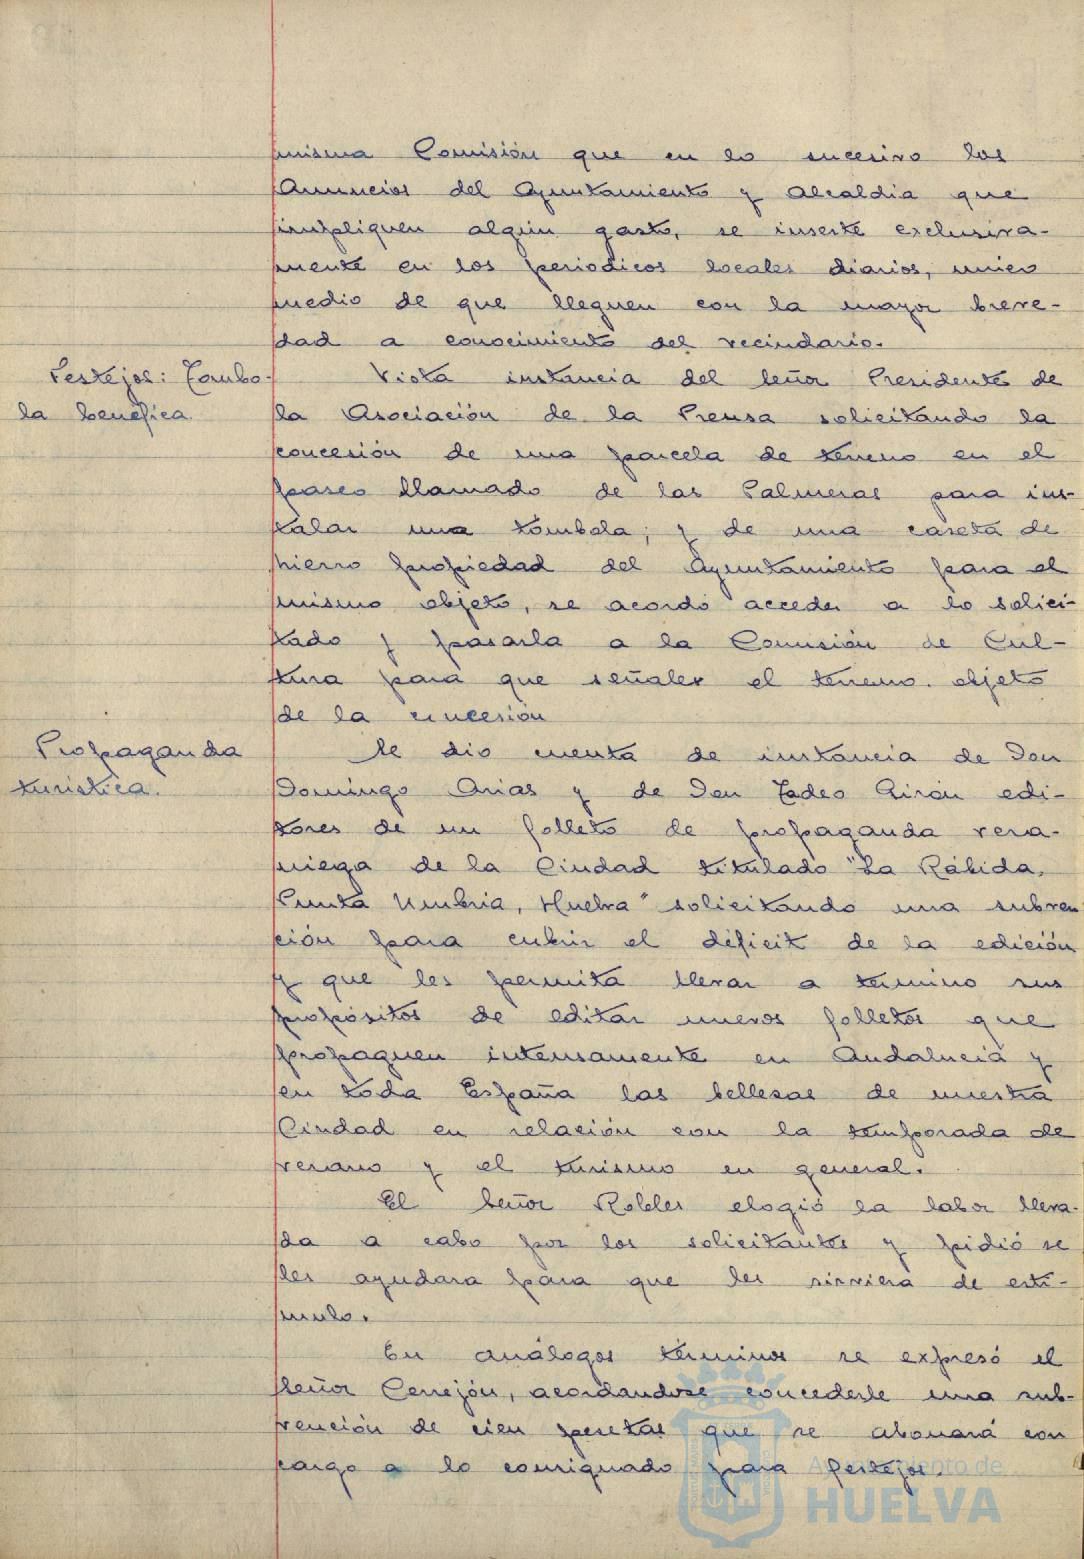 misma Comisión que en lo sucesivo los
Anuncios del Ayuntamiento y Alcaldia que
impliquen algún gasto, se inserte exclusiva-
mente en los periodicos locales diarios, unico
medio de que lleguen con la mayor breve-
dad a conocimiento del vecindario.
Festejos: Tombo-
la benéfica.
Vista instancia del Señor Presidente de
la Asociación de la Prensa solicitando la
concesión de una parcela de terreno en el
paseo llamado de las Palmeras para ins-
talar una tómbola; y de una caseta de
hierro propiedad del Ayuntamiento para el
mismo objeto, se acordó acceder a lo solici-
tado y pasarla a la Comisión de Cul-
tura para que señales el terreno objeto
de la concesión
Propaganda
turistica.
Se dio cuenta de instancia de Don
Domingo Arias y de Don Tadeo Girón edi-
tores de un folleto de propaganda vera-
niega de la Ciudad titulado "La Rábida,
Punta Umbria, Huelva" solicitando una subven
ción para cubrir el déficit de la edición
y que les permita llevar a termino sus
propósitos de editar nuevos folletos que
propaguen intensamente en Andalucia y
en toda España las bellesas de nuestra
Ciudad en relación con la temporada de
verano y el turismo en general.
El Señor Robles elogió la labor lleva-
da a cabo por los solicitantes y pidió se
les ayudara para que les sirviera de esti-
mulo.
En análogos términos se expresó el
Señor Cerrejón, acordandose concederle una sub-
vención de cien pesetas que se abonará con
cargo a lo consignado para festejos.
Ayuntamiento de
HUELVA